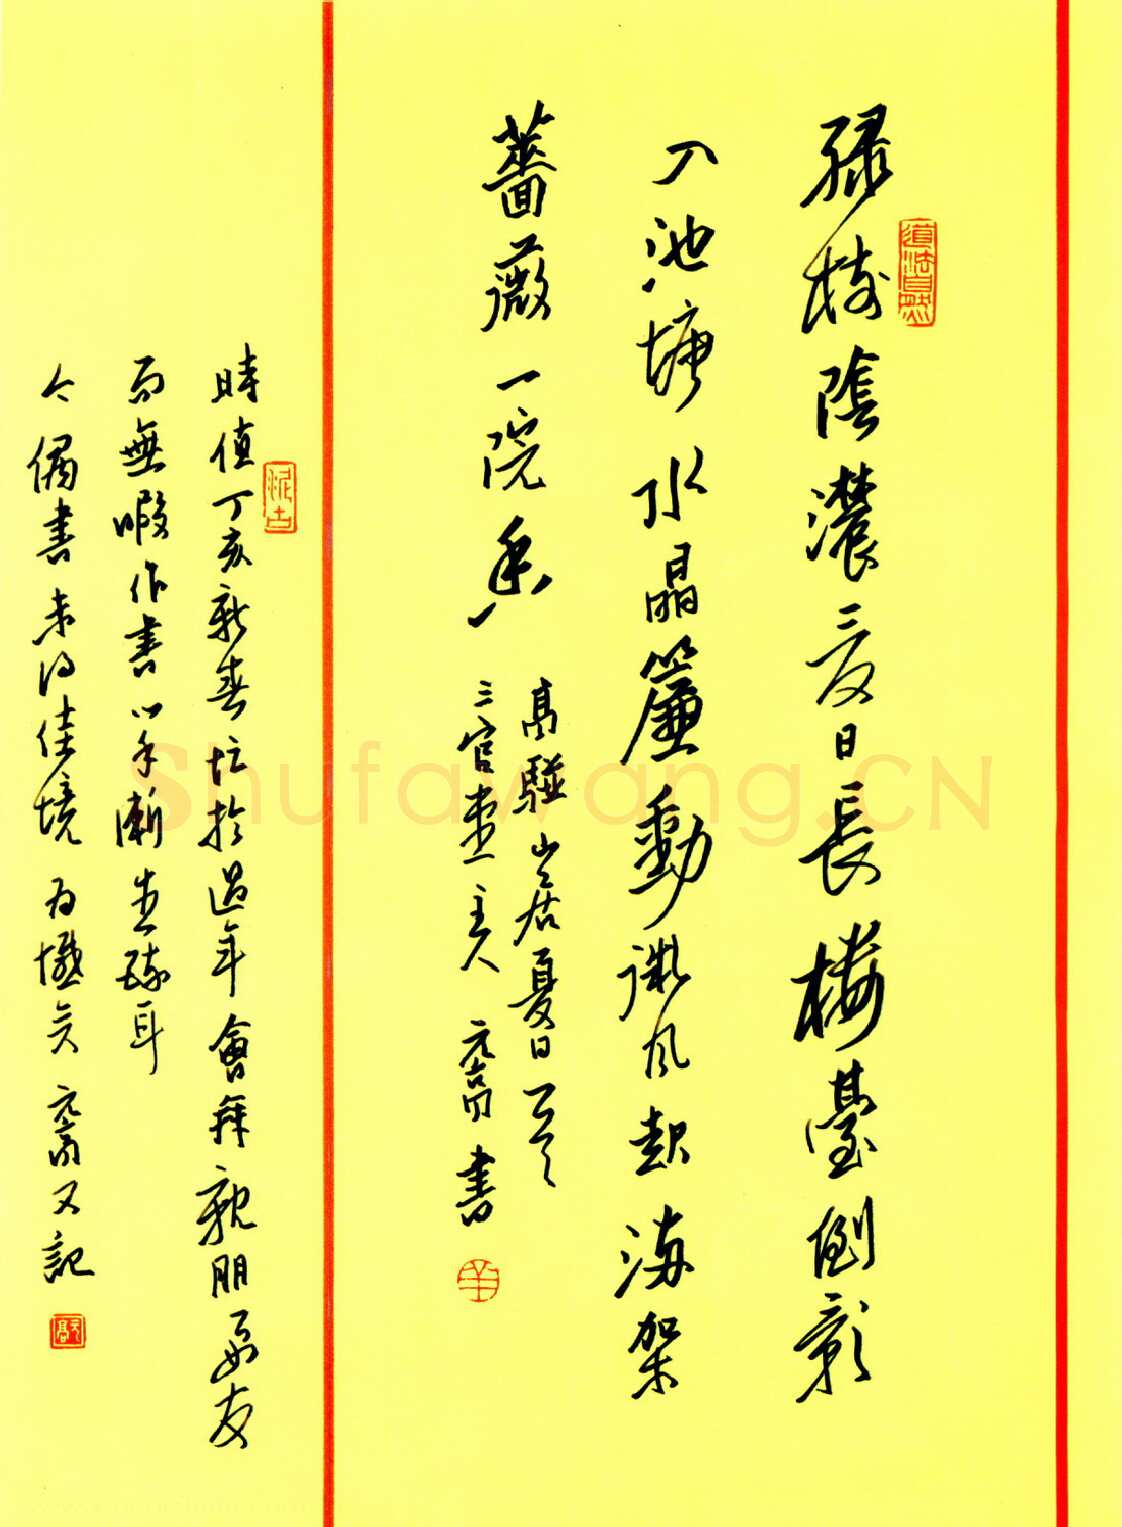 道法自然
綠樹陰濃夏日長樓臺倒影
入池塘水晶簾動微風起滿架
薔薇一院香
高駢山居夏日
三官堂主人 書
泥古
時值丁亥新春忙於過年會拜親朋好友
而無暇作書以手漸生疏耳
今偶書未得佳境為憾矣 又記
Shufawang.CN